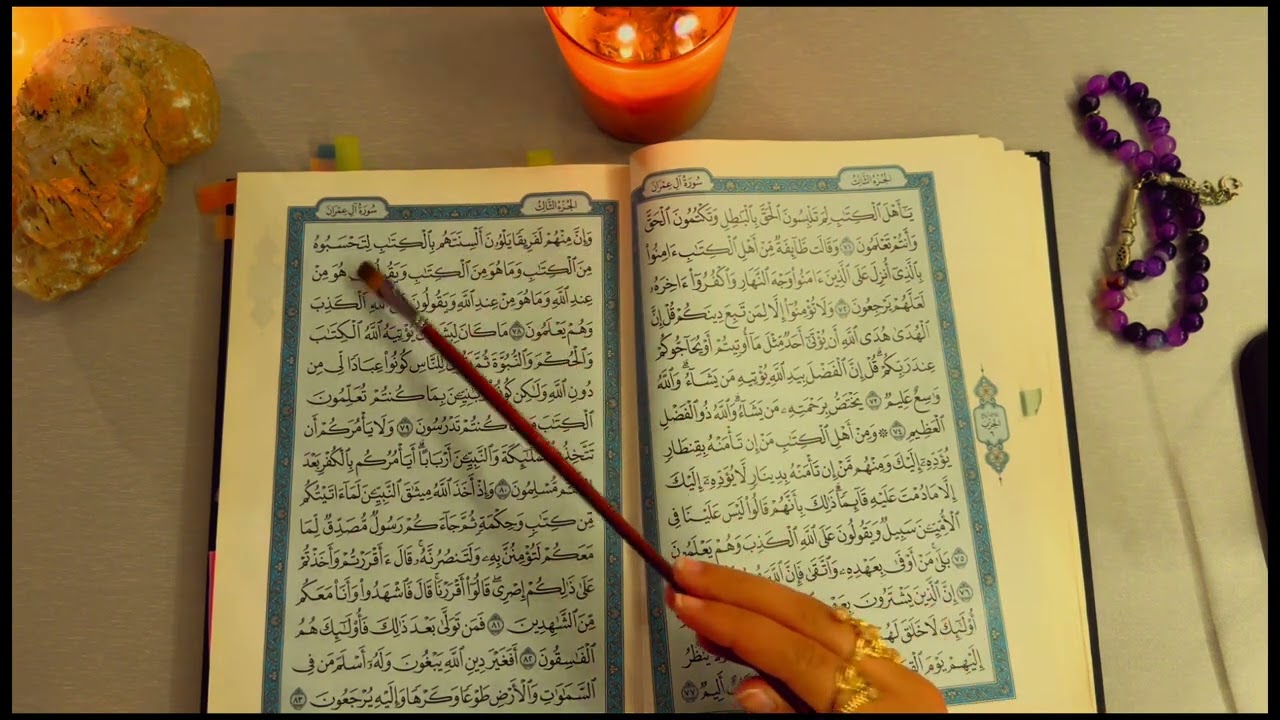 الجُزْءُ الثَّالِثُ
سُورَةُ آلِ عِمْرَانَ
يَٰٓأَهْلَ ٱلْكِتَٰبِ لِمَ تَلْبِسُونَ ٱلْحَقَّ بِٱلْبَٰطِلِ وَتَكْتُمُونَ ٱلْحَقَّ
وَأَنتُمْ تَعْلَمُونَ ٧١ وَقَالَت طَّآئِفَةٌ مِّنْ أَهْلِ ٱلْكِتَٰبِ ءَامِنُوا۟
بِٱلَّذِىٓ أُنزِلَ عَلَى ٱلَّذِينَ ءَامَنُوا۟ وَجْهَ ٱلنَّهَارِ وَٱكْفُرُوٓا۟ ءَاخِرَهُۥ
لَعَلَّهُمْ يَرْجِعُونَ ٧٢ وَلَا تُؤْمِنُوٓا۟ إِلَّا لِمَن تَبِعَ دِينَكُمْ قُلْ إِنَّ
ٱلْهُدَىٰ هُدَى ٱللَّهِ أَن يُؤْتَىٰٓ أَحَدٌ مِّثْلَ مَآ أُوتِيتُمْ أَوْ يُحَآجُّوكُمْ
عِندَ رَبِّكُمْ ۗ قُلْ إِنَّ ٱلْفَضْلَ بِيَدِ ٱللَّهِ يُؤْتِيهِ مَن يَشَآءُ ۗ وَٱللَّهُ
وَٰسِعٌ عَلِيمٌ ٧٣ يَخْتَصُّ بِرَحْمَتِهِۦ مَن يَشَآءُ ۗ وَٱللَّهُ ذُو ٱلْفَضْلِ
ٱلْعَظِيمِ ٧٤ ۞ وَمِنْ أَهْلِ ٱلْكِتَٰبِ مَنْ إِن تَأْمَنْهُ بِقِنطَارٍ
يُؤَدِّهِۦٓ إِلَيْكَ وَمِنْهُم مَّنْ إِن تَأْمَنْهُ بِدِينَارٍ لَّا يُؤَدِّهِۦٓ إِلَيْكَ
إِلَّا مَا دُمْتَ عَلَيْهِ قَآئِمًا ۗ ذَٰلِكَ بِأَنَّهُمْ قَالُوا۟ لَيْسَ عَلَيْنَا فِى
ٱلْأُمِّيِّـۧنَ سَبِيلٌ وَيَقُولُونَ عَلَى ٱللَّهِ ٱلْكَذِبَ وَهُمْ يَعْلَمُونَ
٧٥ بَلَىٰ مَنْ أَوْفَىٰ بِعَهْدِهِۦ وَٱتَّقَىٰ فَإِنَّ ٱللَّهَ
٧٦ إِنَّ ٱلَّذِينَ يَشْتَرُونَ
أُو۟لَٰٓئِكَ لَا خَلَٰقَ لَهُمْ
إِلَيْهِمْ يَوْمَ يَنظُرُ
أَلِيمٌ ٧٧
الجُزْءُ الثَّالِثُ
سُورَةُ آلِ عِمْرَانَ
وَإِنَّ مِنْهُمْ لَفَرِيقًا يَلْوُۥنَ أَلْسِنَتَهُم بِٱلْكِتَٰبِ لِتَحْسَبُوهُ
مِنَ ٱلْكِتَٰبِ وَمَا هُوَ مِنَ ٱلْكِتَٰبِ هُوَ مِنْ
عِندِ ٱللَّهِ وَمَا هُوَ مِنْ عِندِ ٱللَّهِ وَيَقُولُونَ ٱللَّهِ ٱلْكَذِبَ
وَهُمْ يَعْلَمُونَ ٧٨ مَا كَانَ لِبَشَرٍ يُؤْتِيَهُ ٱللَّهُ ٱلْكِتَٰبَ
وَٱلْحُكْمَ وَٱلنُّبُوَّةَ ثُمَّ لِلنَّاسِ كُونُوا۟ عِبَادًا لِّى مِن
دُونِ ٱللَّهِ وَلَٰكِن كُونُوا۟ بِمَا كُنتُمْ تُعَلِّمُونَ
ٱلْكِتَٰبَ كُنتُمْ تَدْرُسُونَ ٧٩ وَلَا يَأْمُرَكُمْ أَن
تَتَّخِذُوا۟ ٱلْمَلَٰٓئِكَةَ وَٱلنَّبِيِّـۧنَ أَرْبَابًا ۗ أَيَأْمُرُكُم بِٱلْكُفْرِ بَعْدَ
مُّسْلِمُونَ ٨٠ وَإِذْ أَخَذَ ٱللَّهُ مِيثَٰقَ ٱلنَّبِيِّـۧنَ لَمَآ ءَاتَيْتُكُم
مِّن كِتَٰبٍ وَحِكْمَةٍ ثُمَّ جَآءَكُمْ رَسُولٌ مُّصَدِّقٌ لِّمَا
مَعَكُمْ لَتُؤْمِنُنَّ بِهِۦ وَلَتَنصُرُنَّهُۥ ۚ قَالَ ءَأَقْرَرْتُمْ وَأَخَذْتُمْ
عَلَىٰ ذَٰلِكُمْ إِصْرِى ۖ قَالُوٓا۟ أَقْرَرْنَا ۚ قَالَ فَٱشْهَدُوا۟ وَأَنَا۠ مَعَكُم
مِّنَ ٱلشَّٰهِدِينَ ٨١ فَمَن تَوَلَّىٰ بَعْدَ ذَٰلِكَ فَأُو۟لَٰٓئِكَ هُمُ
ٱلْفَٰسِقُونَ ٨٢ أَفَغَيْرَ دِينِ ٱللَّهِ يَبْغُونَ وَلَهُۥٓ أَسْلَمَ مَن فِى
ٱلسَّمَٰوَٰتِ وَٱلْأَرْضِ طَوْعًا وَكَرْهًا وَإِلَيْهِ يُرْجَعُونَ ٨٣